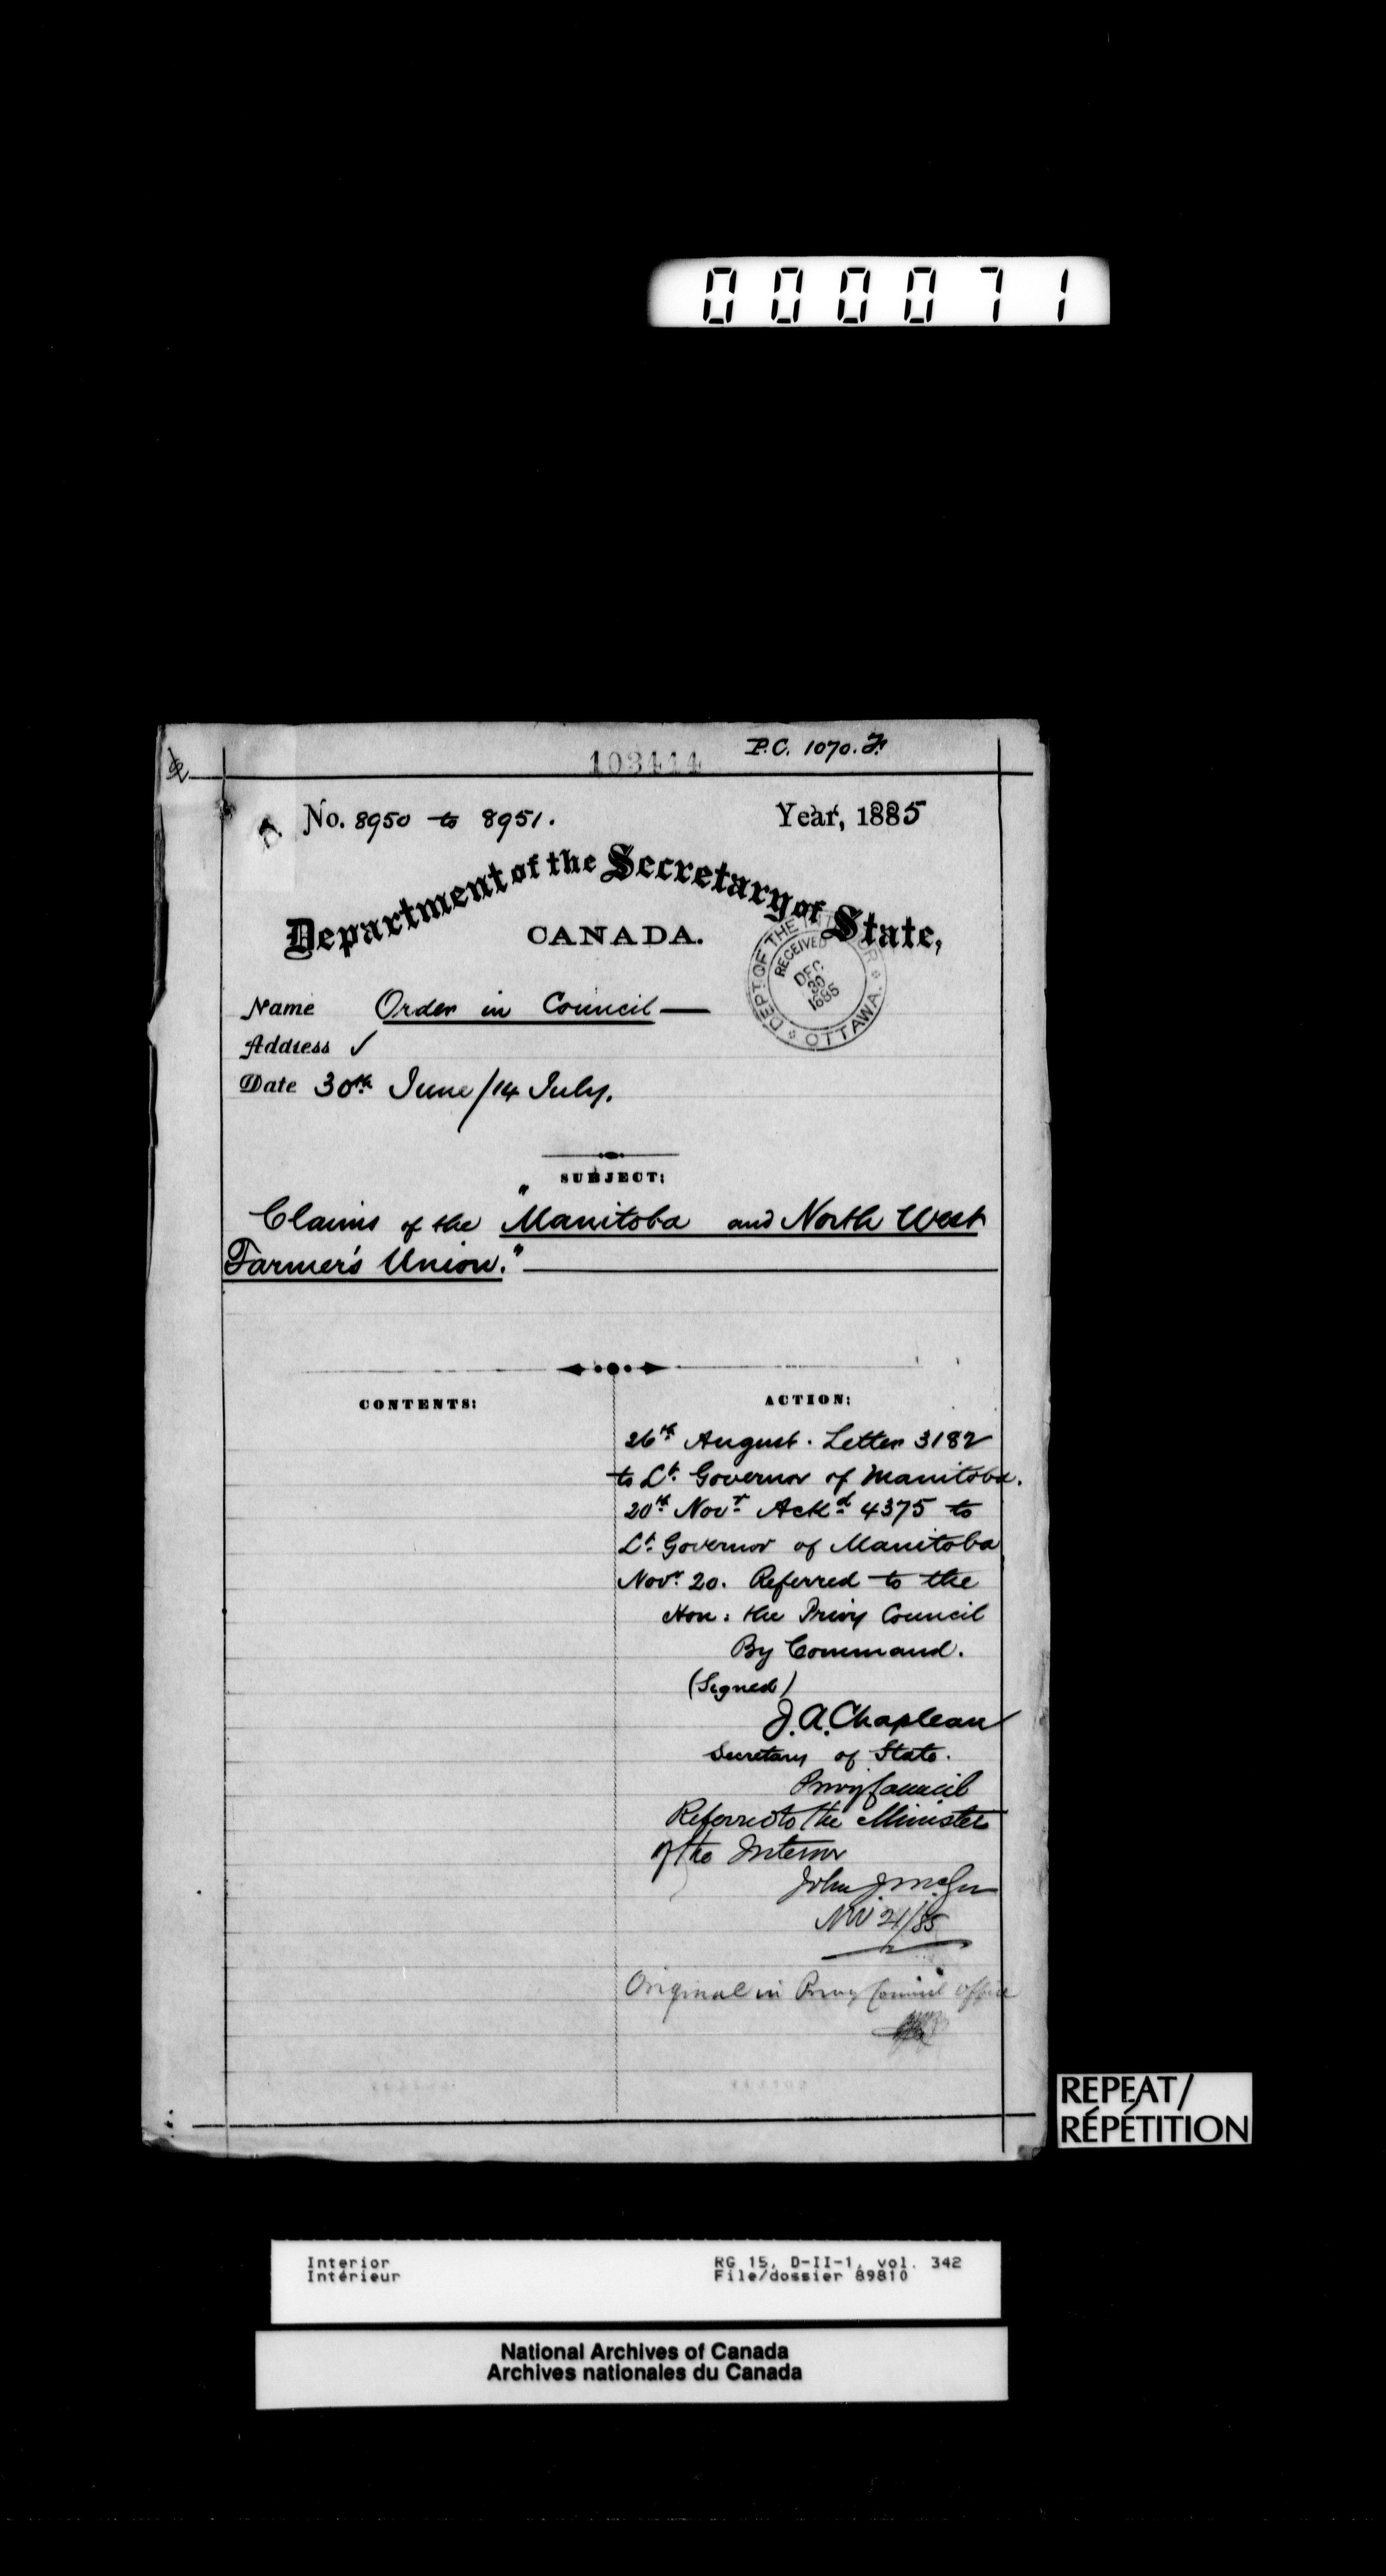 000071
P.C. 1070. F.
103414
No. 8950 to 8951.
Year, 1885
Department of the Secretary of State,
CANADA.
DEPT. OF THE INTERIOR
RECEIVED
DEC
30
1885
OTTAWA.
Name Order in Council
Address ✓
Date 30th June/14 July.
SUBJECT:
Claims of the "Manitoba and North West
Farmer's Union."
CONTENTS:
ACTION:
26th August. Letter 3182
to Lt. Governor of Manitoba.
20th Novr Ackd 4375 to
Lt. Governor of Manitoba
Novr. 20. Referred to the
Hon: the Privy Council
By Command.
(Signed)
J.A. Chapleau
Secretary of State.
Privy Council
Referred to the Minister
of the Interior
John J. McGee
Nov 21/85
Original in Privy Council Office
REPEAT/
RÉPÉTITION
Interior
Intérieur
RG 15, D-II-1, vol. 342
File/dossier 89810
National Archives of Canada
Archives nationales du Canada